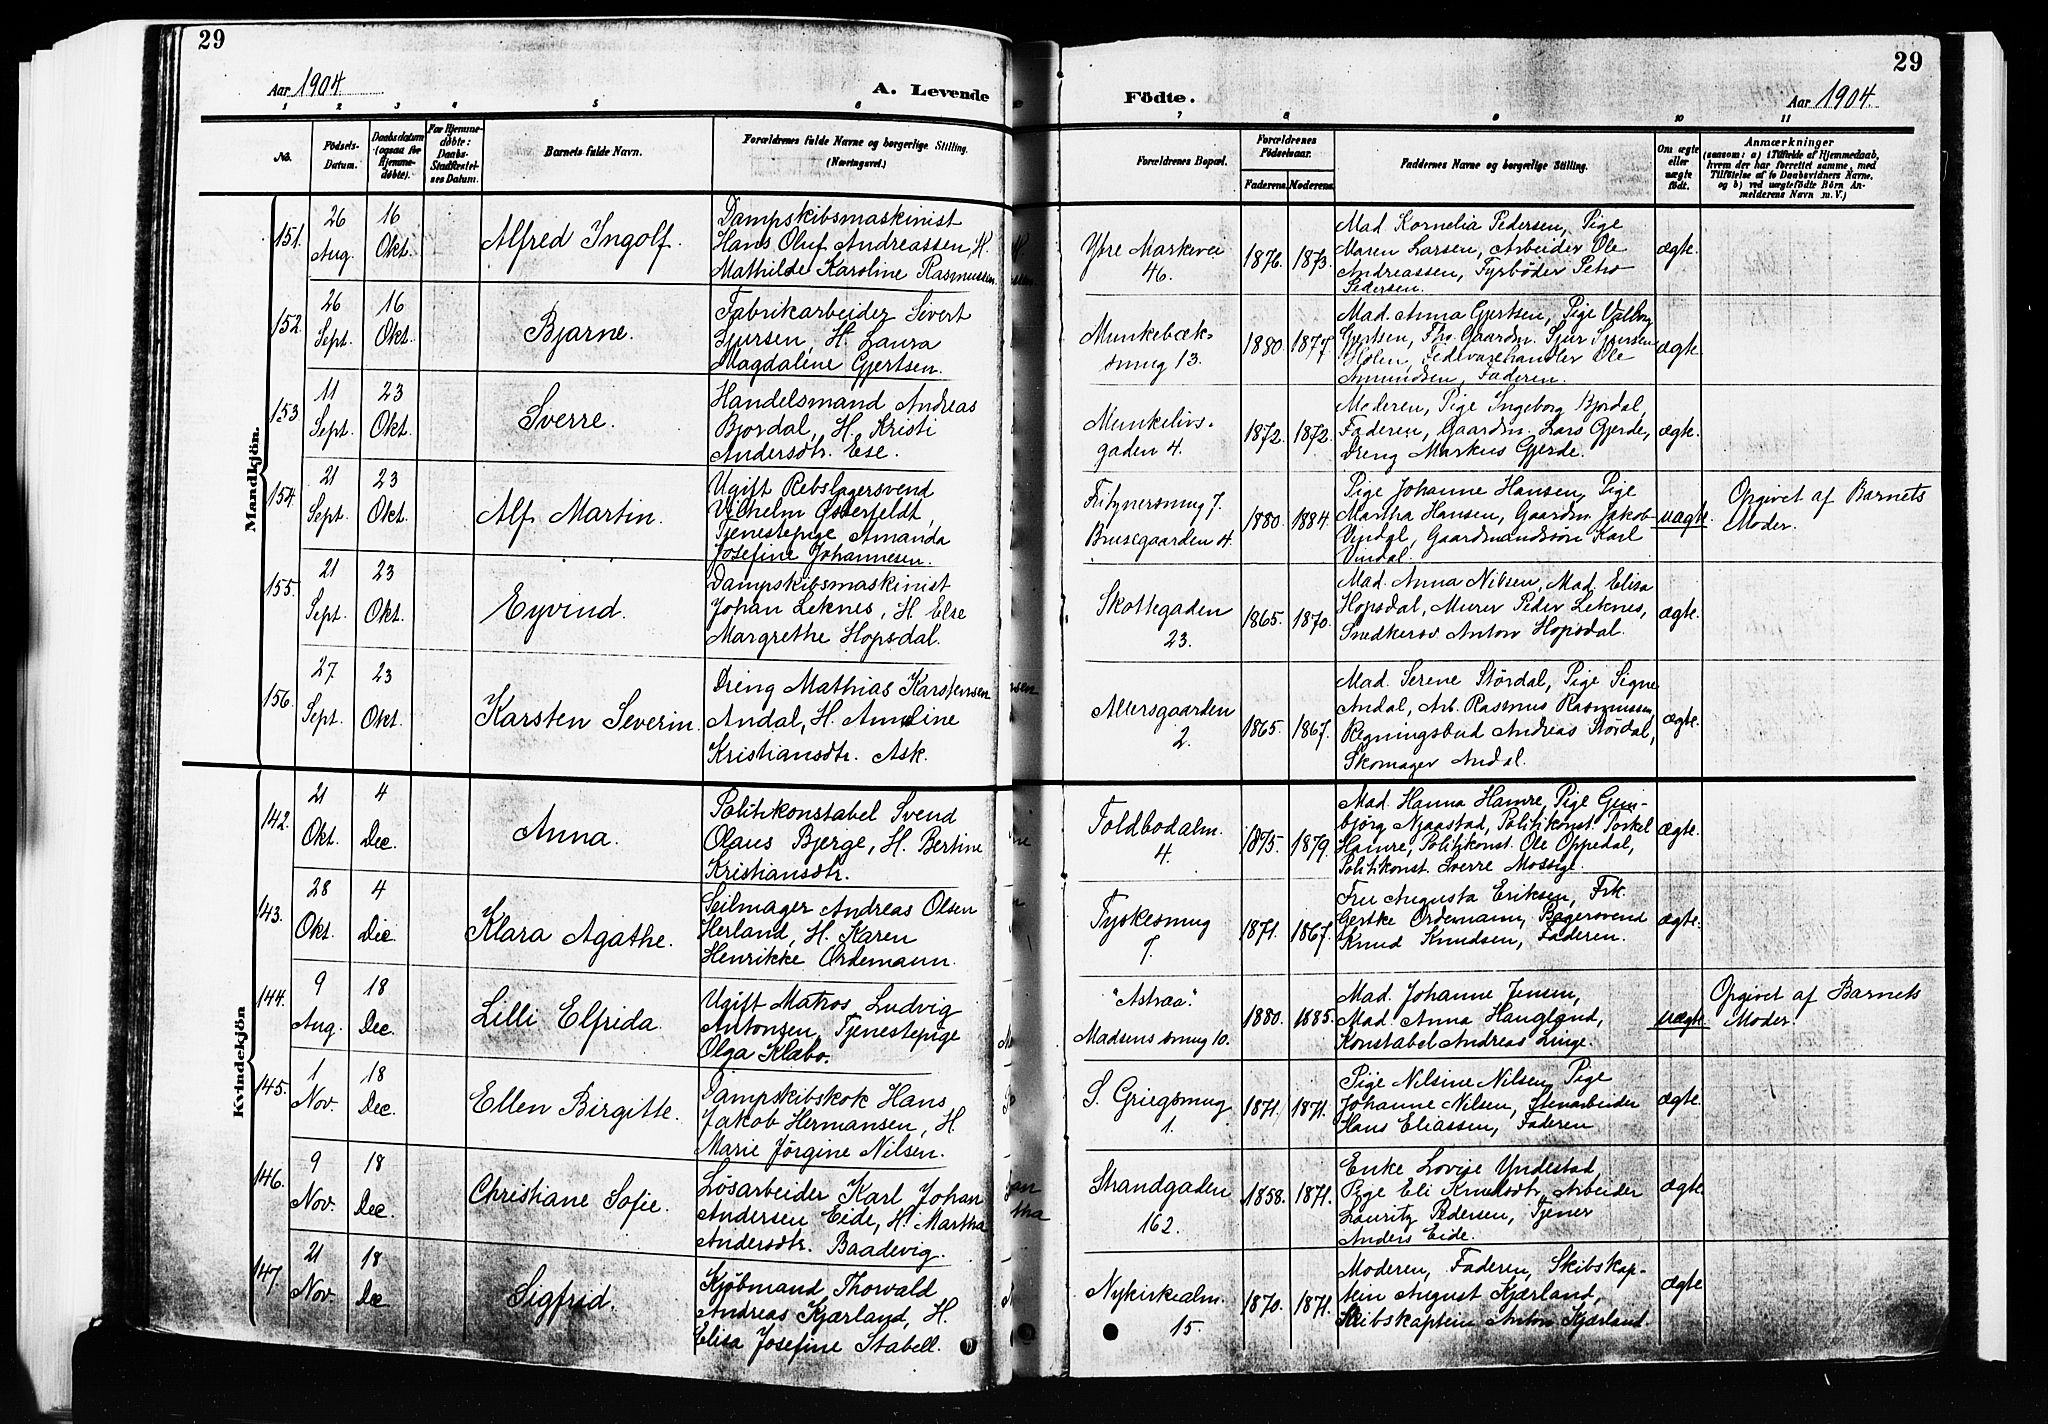 29
29
Aar 1904.
A. Levende
Födte.
Aar 1904.
1 2 3 4 5 6
7 8 9 10 11
No.
Födsels-Datum.
Daabsdatum (ogsaa for Hjemme-døbte).
For Hjemme-døbte: Daabs-Stadfæstelses Datum.
Barnets fulde Navn.
Forældrenes fulde Navne og borgerlige Stilling.
(Næringsvei.)
Forældrenes Bopæl.
Forældrenes Födselsaar.
Faderens. Moderens.
Faddernes Navne og borgerlige Stilling.
Om ægte eller uægte født.
Anmærkninger
(saasom: a) i Tilfælde af Hjemmedaab,
hvem der har forrettet samme, med
Tilføielse af to Daabsvidners Navne,
og b) ved uægtefødte Börn An-
melderens Navn m. V.)
Mandkjön.
151.
26 Aug.
16 Okt.
Alfred Ingolf.
Dampskibsmaskinist
Hans Oluf Andreassen, H.
Mathilde Karoline Rasmussen
Ytre Markevei
46.
1876. 1873.
Mad Kornelia Pedersen, Pige
Maren Larsen, Arbeider Ole
Andreassen, Fyrbøder Petro
Pedersen.
ægte.
152.
26 Sept.
16 Okt.
Bjarne.
Fabrikarbeider Sivert
Sjursen, H. Laura
Magdaline Gjertsen.
Munkebæk-
smug 13.
1880. 1877.
Mad. Anna Gjertsen, Pige Valborg
Gjertsen, Fhv. Gaardm. Sjur Sjursen
Holen, Fedevarehandler Ole
Amundsen, Faderen.
ægte.
153
11 Sept.
23 Okt.
Sverre.
Handelsmand Andreas
Bjordal, H. Kristi
Andersdtr. Ese.
Munkelivs-
gaden 4.
1872. 1872.
Moderen, Pige Ingeborg Bjordal,
Faderen, Gaardm. Lars Gjerde,
Dreng Markus Gjerde.
ægte.
154.
21 Sept.
23 Okt.
Alf Martin.
Ugift Rebslagersvend
Vilhelm Osterfeldt,
Tjenestepige Amanda
Josefine Johannesen.
Fritznersmug 7.
Brusegaarden 4.
1880. 1884.
Pige Johanne Hansen, Pige
Martha Hansen, Gaardm. Jakob
Vindal, Gaardmandssøn Karl
Vindal.
uægte.
Opgivet af Barnets
Moder.
155.
21 Sept.
23 Okt.
Eyvind.
Dampskibsmaskinist
Johan Leknes, H. Else
Margrethe Hopsdal.
Skottegaden
23.
1865. 1870.
Mad. Anna Nilsen, Mad. Elisa
Hopsdal, Murer Peder Leknes,
Snedkersv Anton Hopsdal.
ægte.
156.
27 Sept.
23 Okt.
Karsten Severin.
Dreng Mathias Karstensen
Andal, H. Anneline
Kristiansdtr. Ask.
Allersgaarden
2.
1865. 1867.
Mad. Serene Stördal, Pige Signe
Andal, Arb. Rasmus Rasmussen,
Regningsbud Andreas Stördal,
Skomager Andal.
ægte.
Kvindekjön
142.
21 Okt.
4 Dec.
Anna.
Politikonstabel Svend
Olaus Bjerge, H. Bertine
Kristiansdtr.
Toldbodalm.
4.
1875. 1879.
Mad. Hanna Hamre, Pige Gun-
björg Njaastad, Politikonst. Torkel
Hamre, Politikonst. Ole Oppedal,
Politikonst. Sverre Mossige.
ægte.
143.
28 Okt.
4 Dec.
Klara Agathe.
Seilmager Andreas Olsen
Herland, H. Karen
Henrikke Ordemann.
Tyskesmug
7.
1871. 1867.
Fru Augusta Eriksen, Frk.
Gerthe Ordemann, Bagersvend
Knud Knudsen, Faderen.
ægte.
144.
9 Aug.
18 Dec.
Lilli Elfrida.
Ugift Matros Ludvig
Antonsen, Tjenestepige
Olga Klæbo.
"Astræa".
Madsens smug 10.
1880. 1885.
Mad. Johanne Jensen,
Mad. Anna Haugland,
Konstabel Andreas Linge.
uægte.
Opgivet af Barnets
Moder.
145.
1 Nov.
18 Dec.
Ellen Birgitte.
Dampskibskok Hans
Jakob Hermansen, H.
Marie Jörgine Nilsen.
S. Griegsmug
1.
1871. 1871.
Pige Nilsine Nilsen, Pige
Johanne Nilsen, Stenarbeider
Hans Eliassen, Faderen
ægte.
146.
9 Nov.
18 Dec.
Christiane Sofie.
Løsarbeider Karl Johan
Andersen Eide, H. Martha
Andersdtr. Baadevig.
Strandgaden
162.
1858. 1871.
Enke Lovise Yndestad,
Pige Eli Knudsdtr, Arbeider
Lauritz Pedersen, Tjener
Anders Eide.
ægte.
147.
21 Nov.
18 Dec
Sigfrid.
Kjöbmand Thorvald
Andreas Kjærland, H.
Elisa Josefine Stabell.
Nykirkealm.
15.
1870. 1871.
Moderen, Faderen, Skibskap-
tein August Kjærland,
Skibskaptein Anton Kjærland.
ægte